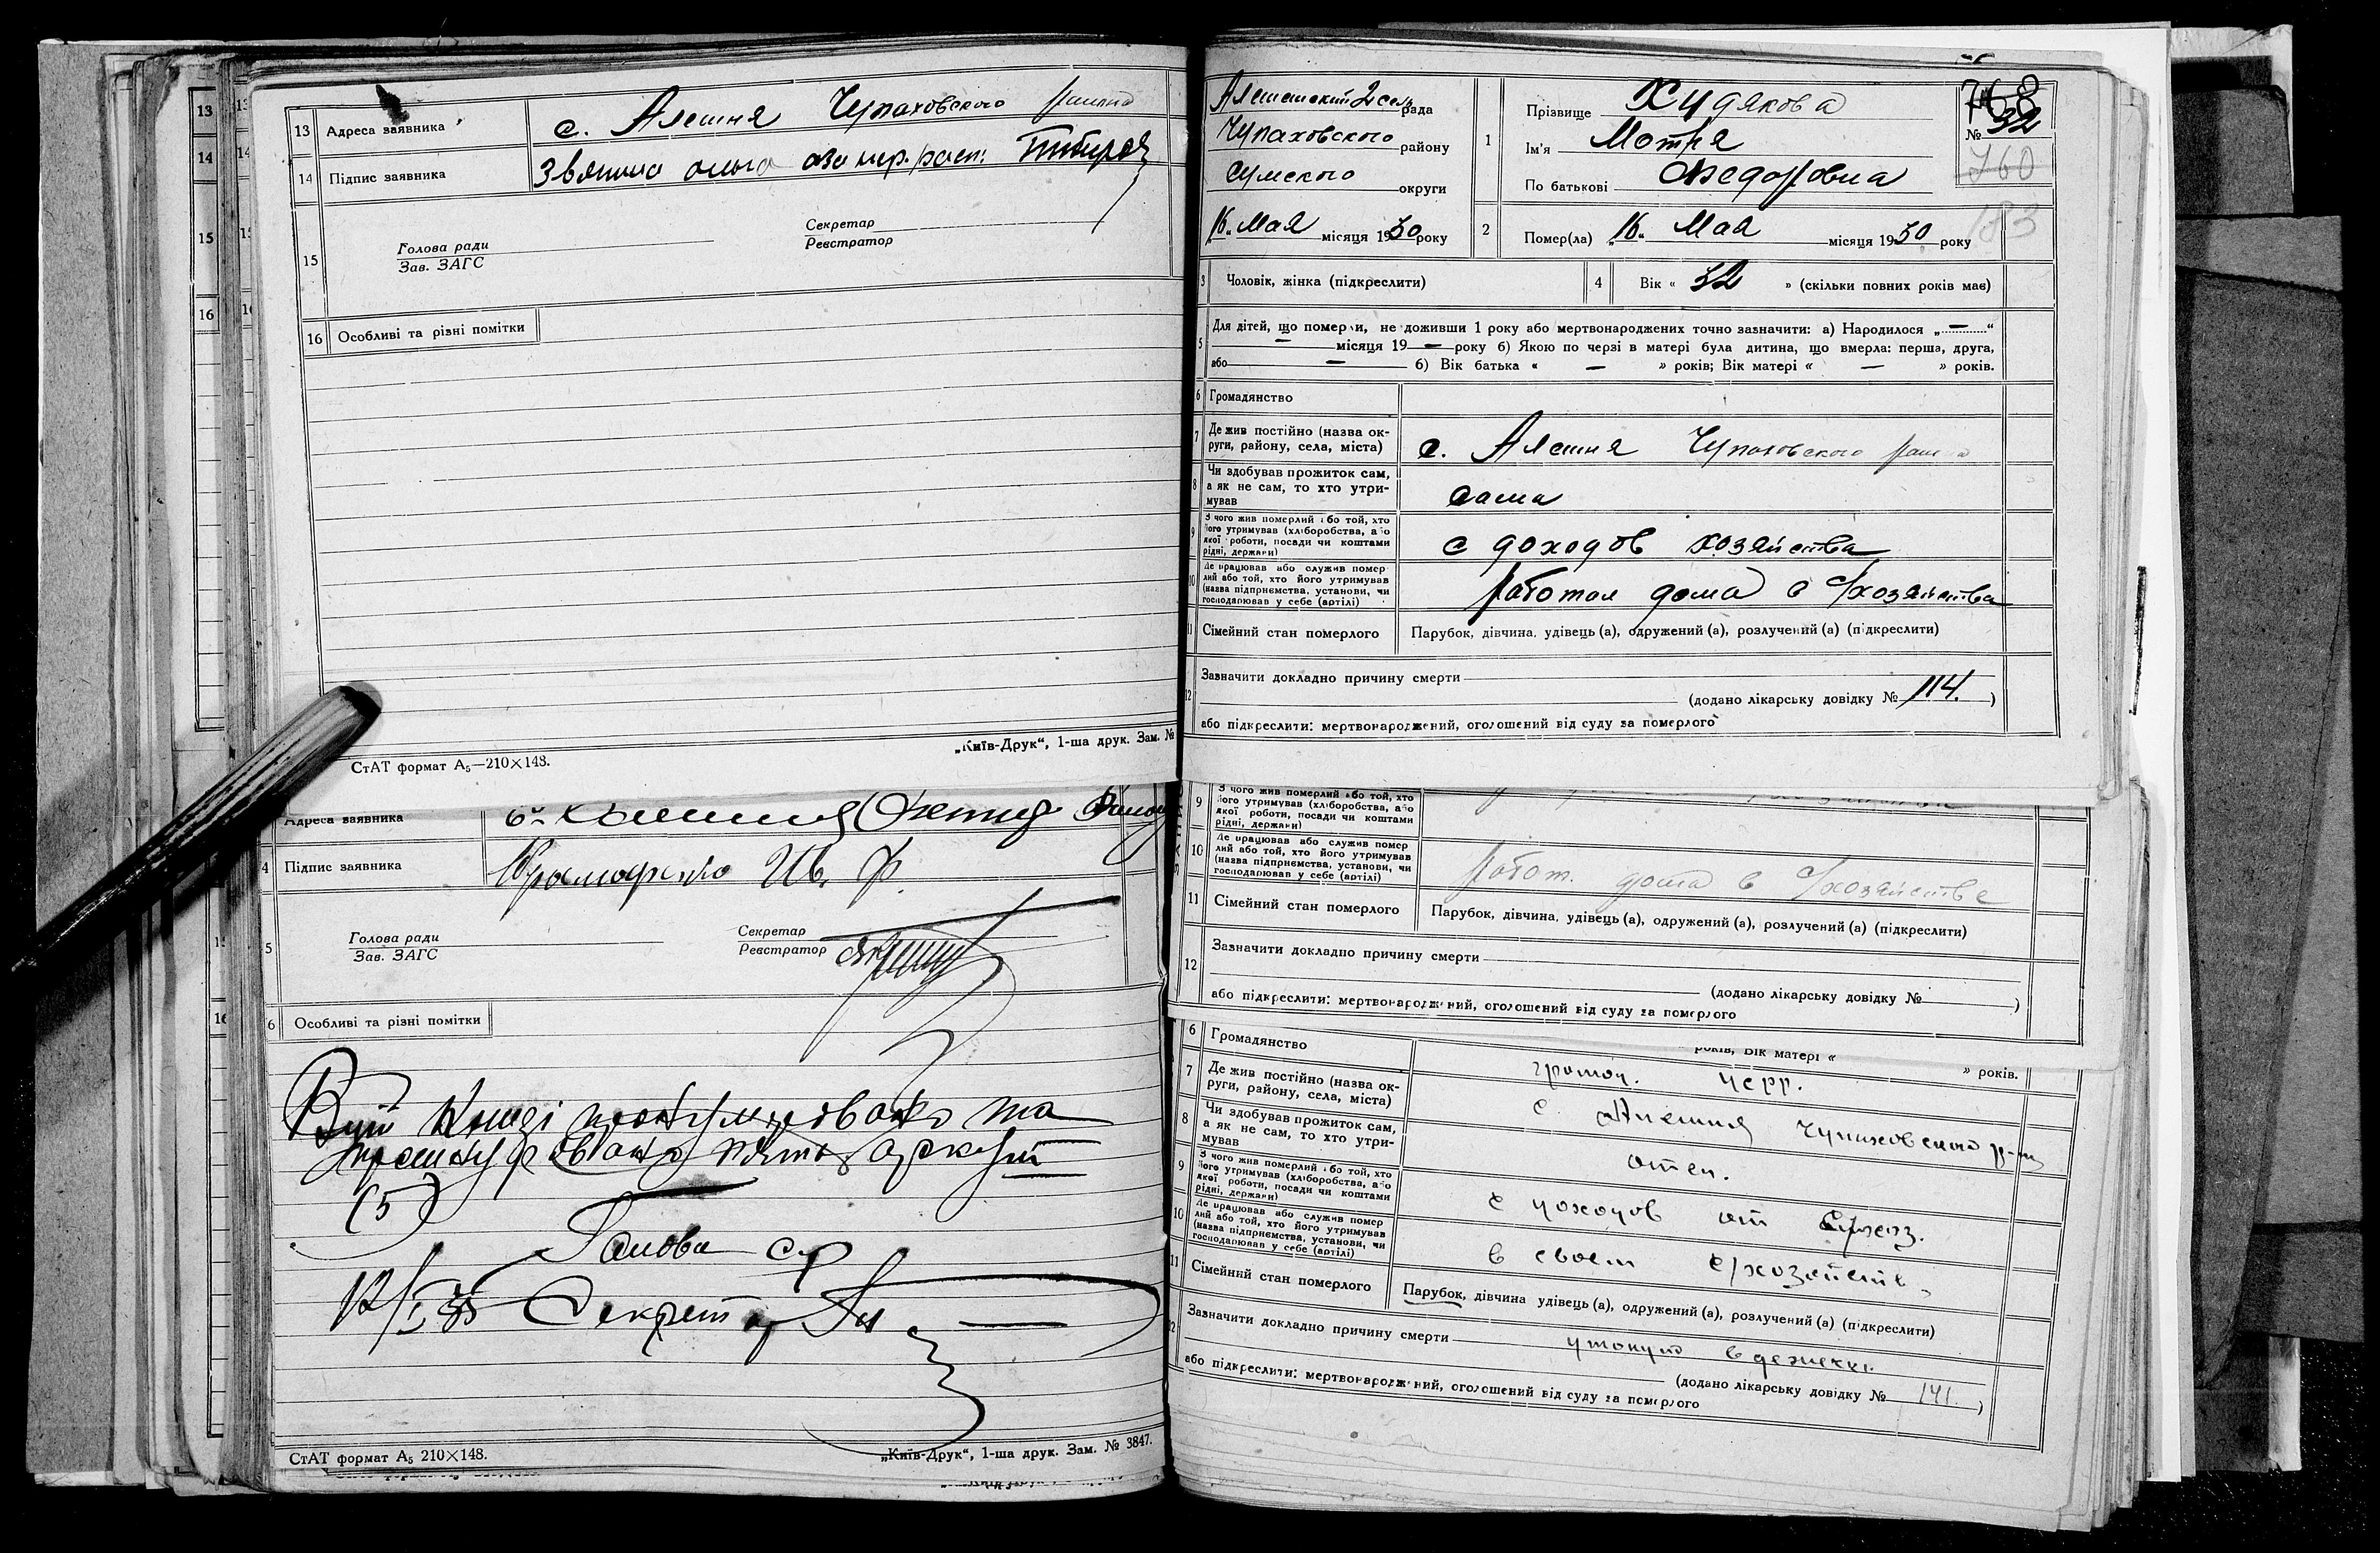 13 Адреса заявника с. Алешня Чупаховского района
14 Підпис заявника
15
Секретар
Голова ради Реєстратор
Зав. ЗАГС
16 Особливі та різні помітки
„Київ-Друк“, 1-ша друк. Зам. №
СтАТ формат А5—210×148.
Адреса заявника
4 Підпис заявника Ив. Ф.
5
Голова ради Секретар
Зав. ЗАГС Реєстратор
6 Особливі та різні помітки
(5)
Голова с/р
Секретар
СтАТ формат А5 210×148. „Київ-Друк“, 1-ша друк. Зам. № 3847.
рада
Чупаховского району
Сумского округи
„16“ Мая місяця 1930 року
1 Прізвище Худякова
Ім'я Мотря
По батькові Федоровна
768
№ 32
760
183
2 Помер(ла) „16“ Мая місяця 1930 року
3 Чоловік, жінка (підкреслити) 4 Вік « 32 » (скільки повних років має)
5 Для дітей, що померли, не доживши 1 року або мертвонароджених точно зазначити: а) Народилося „—“
— місяця 19 — року б) Якою по черзі в матері була дитина, що вмерла: перша, друга,
або — 6) Вік батька « — » років; Вік матері « — » років.
6 Громадянство
7 Де жив постійно (назва ок-
руги, району, села, міста) с. Алешня Чупаховского
8 Чи здобував прожиток сам,
а як не сам, то хто утри-
мував сама
9 З чого жив померлий або той, хто
його утримував (хліборобства, або
якої роботи, посади чи коштами
рідні, держави) с доходов хозяйства
10 Де працював або служив помер
лий або той, хто його утримував
(назва підприємства, установи, чи
господарював у себе (артілі) Работая дома в с/хозяйства
11 Сімейний стан померлого Парубок, дівчина, удівець (а), одружений (а), розлучений (а) (підкреслити)
12 Зазначити докладно причину смерти
(додано лікарську довідку № 114.)
або підкреслити: мертвонароджений, оголошений від суду за померлого
9 З чого жив померлий або той, хто
його утримував (хліборобства, або
якої роботи, посади чи коштами
рідні, держави)
10 Де працював або служив помер
лий або той, хто його утримував
(назва підприємства, установи, чи
господарював у себе (артілі) Работ. дома в с/хозяйстве
11 Сімейний стан померлого Парубок, дівчина, удівець (а), одружений (а), розлучений (а) (підкреслити)
12 Зазначити докладно причину смерти
(додано лікарську довідку № )
або підкреслити: мертвонароджений, оголошений від суду за померлого
років; Вік матері « » років.
6 Громадянство
7 Де жив постійно (назва ок-
руги, району, села, міста) с. Алешня Чупаховского р-на
8 Чи здобував прожиток сам,
а як не сам, то хто утри-
мував отец.
9 З чого жив померлий або той, хто
його утримував (хліборобства, або
якої роботи, посади чи коштами
рідні, держави) с доходов от с/хоз.
10 Де працював або служив помер
лий або той, хто його утримував
(назва підприємства, установи, чи
господарював у себе (артілі) в своем с/хозяйств
11 Сімейний стан померлого Парубок, дівчина удівець (а), одружений (а), розлучений (а) (підкреслити)
Зазначити докладно причину смерти
(додано лікарську довідку № 141.)
або підкреслити: мертвонароджений, оголошений від суду за померлого